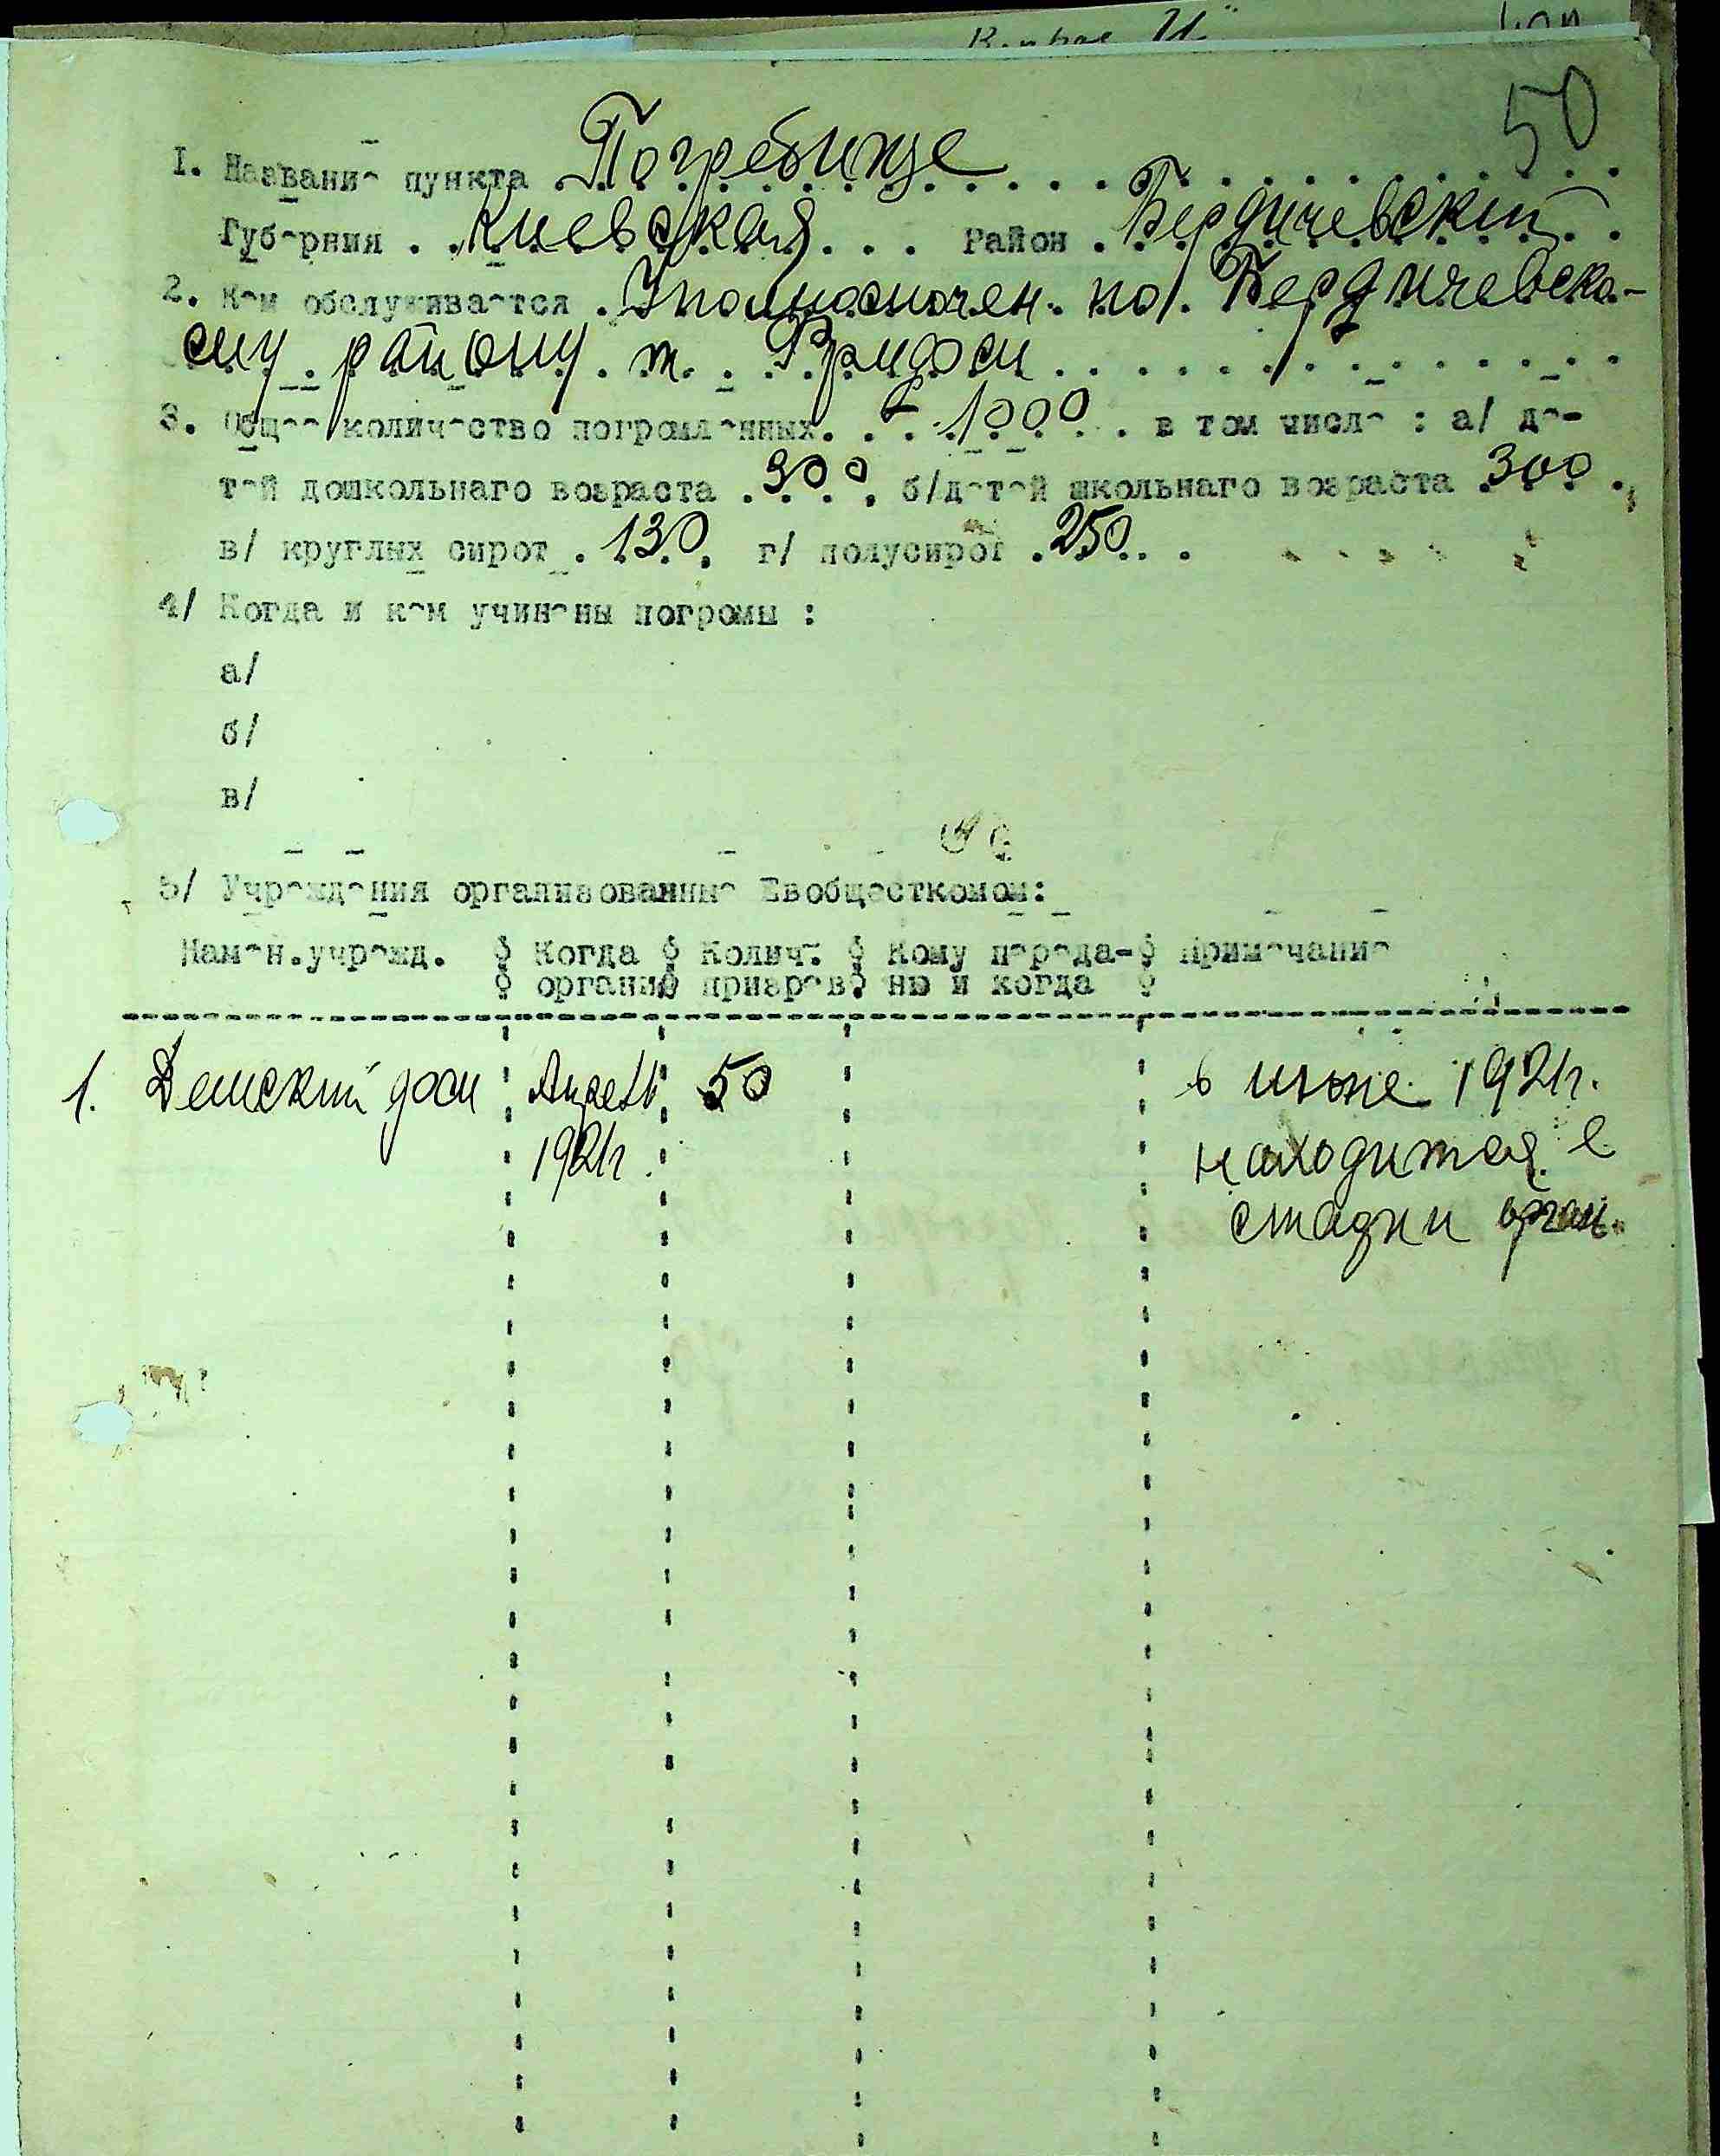 50
I. Название пункта Погребище
Губерния Киевская Район Бердичевский
2. Кем обслуживается Уполномочен. по Бердичевско-
му району т. Фридман
3. Общее количество погромленных 1000 в том числе : а/ де-
тей дошкольнаго возраста 300, б/детей школьнаго возраста 300,
в/ круглых сирот 130, г/ полусирот 250
4/ Когда и кем учинены погромы :
а/
б/
в/
5/ Учреждения организованные Евобщесткомом:
Наимен.учрежд. Когда Колич. Кому переда- Примечание
организ призрев. но и когда
1. Детский дом Апрель 50 в июне 1921г.
1921г находится в
стадии орган.